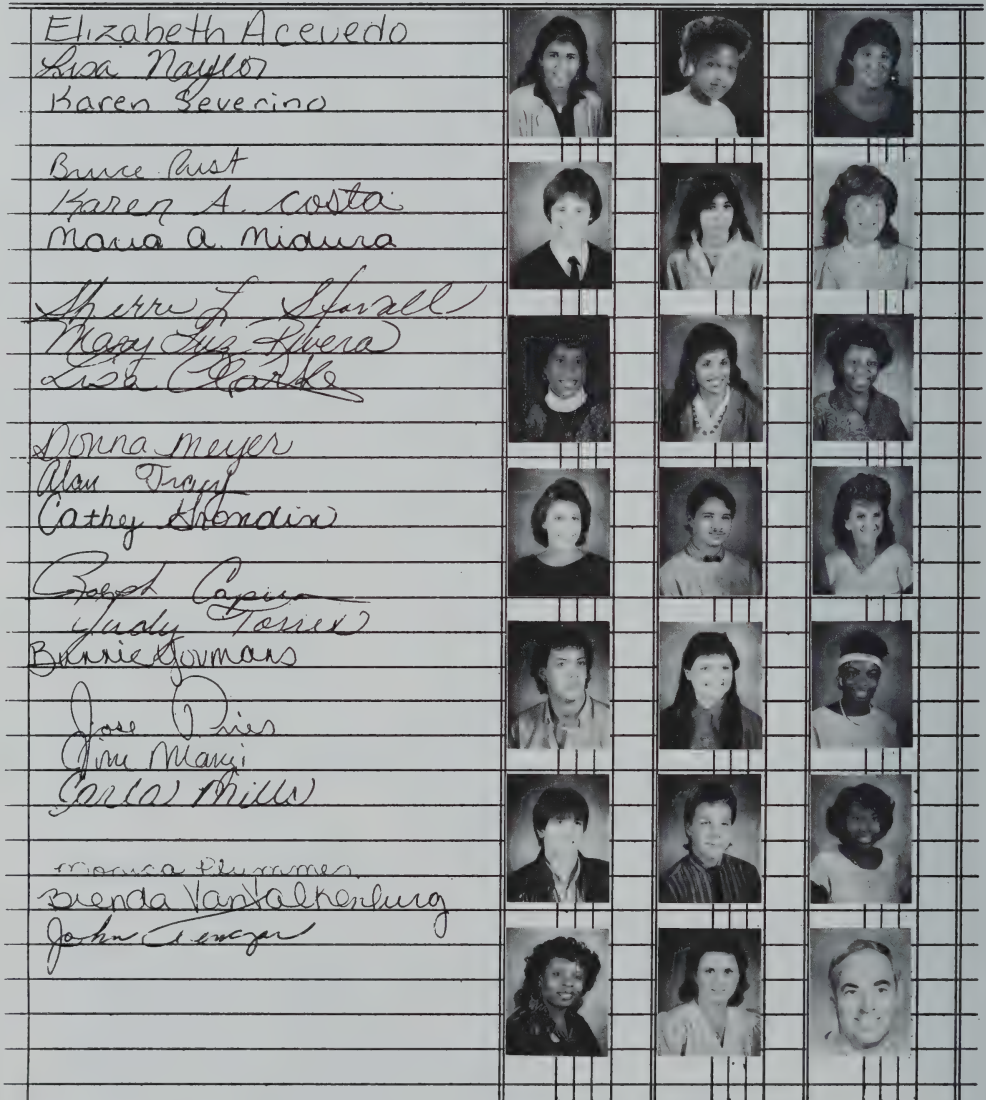 Elizabeth Acevedo
Lisa Naylor
Karen Severino
Bruce Rust
Karen A. Costa
Maria A. Midura
Sherri L. Stovall
Mary Luz Rivera
Lisa Clarke
Donna Meyer
Alan Tracy
Cathy Grondin
Ralph
Judy Torres
Bonnie Youmans
Jose
Jim
Carla Mills
Monica Plummer
Brenda VanValkenburg
John